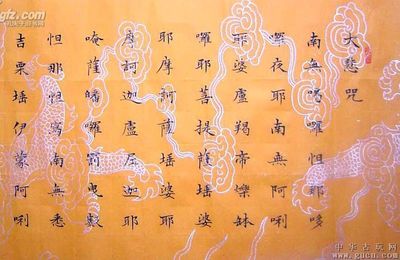 大悲咒
南無喝囉怛那哆
囉夜耶南無阿唎
耶婆盧羯帝爍缽
囉耶菩提薩埵婆
耶摩訶薩埵婆耶
摩訶迦盧尼迦耶
唵薩皤囉罰曳數
怛那怛寫南無悉
吉栗埵伊蒙阿唎
中华古玩网
www.gucn.com